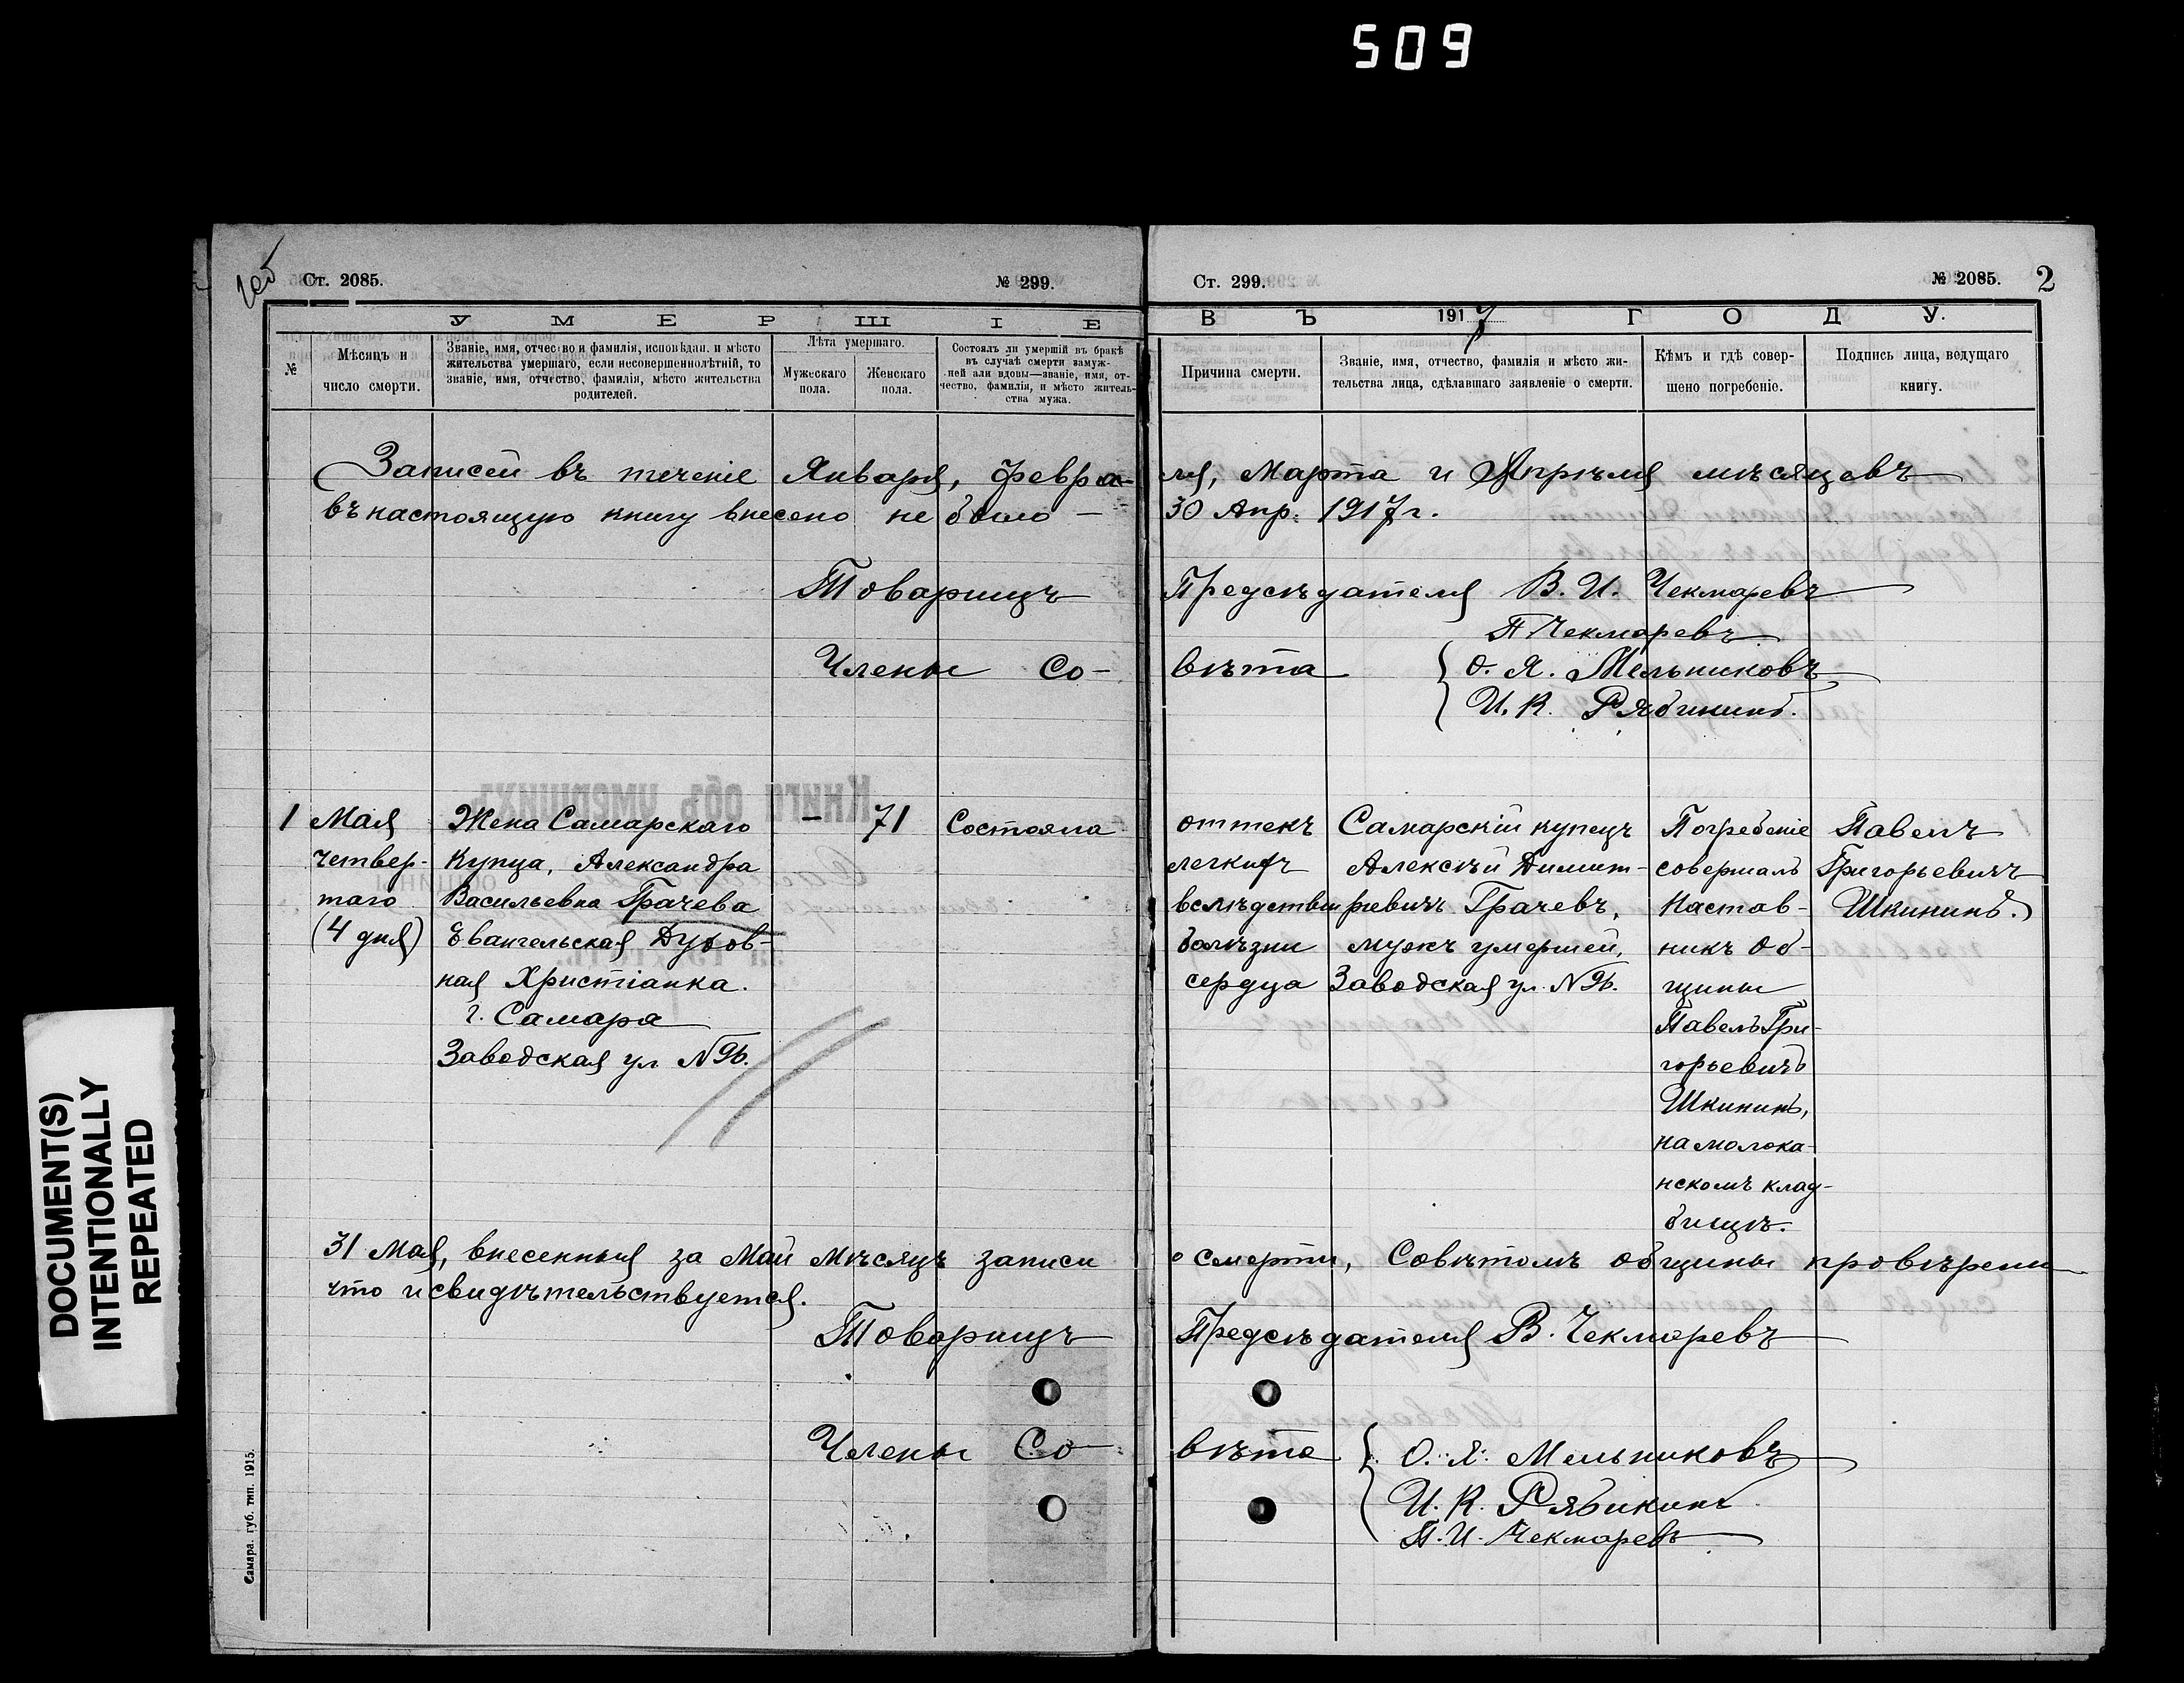 509
DOCUMENT(S)
INTENTIONALLY
REPEATED
Ст. 2085. № 299.
Ст. 299. № 2085. 2
УМЕРШІЕ ВЪ 1917 ГОДУ.
№
Мѣсяцъ и
число смерти.
Званіе, имя, отчество и фамилія, исповѣдан. и мѣсто
жительства умершаго, если несовершеннолѣтній, то
званіе, имя, отчество, фамилія, мѣсто жительства
родителей.
Лѣта умершаго.
Мужескаго
пола.
Женскаго
пола.
Состоялъ ли умершій въ бракѣ
въ случаѣ смерти замуж-
ней али вдовы—званіе, имя, от-
чество, фамилія, и мѣсто житель-
ства мужа.
Причина смерти.
Званіе, имя, отчество, фамилія и мѣсто жи-
тельства лица, сдѣлавшаго заявленіе о смерти.
Кѣмъ и гдѣ совер-
шено погребеніе.
Подпись лица, ведущаго
книгу.
Записей въ теченіе Января, Февра-ля, Марта и Апрѣля мѣсяцевъ
въ настоящую книгу внесено не было — 30 Апр. 1917 г.
Товарищъ Предсѣдателя В. И. Чекмаревъ
П Чекмаревъ
Члены Со-вѣта О. Я. Мельниковъ
И. К. Рябикинъ.
1
Мая
четвер-
таго
(4 дня)
Жена Самарскаго
Купца, Александра
Васильевна Грачева
Евангельская Духов-
ная Христіанка.
г. Самара
Заводская ул № 96.
— 71
Состояла
оттекъ
легкихъ
вслѣдствіи
болѣзни
сердца
Самарскій купецъ
Алексѣй Димит-
ріевичъ Грачевъ,
мужъ умершей,
Заводская ул. № 96.
Погребеніе
совершалъ
Настав-
никъ Об-
щины
Павелъ Гри-
горьевичъ
Шкининъ,
на молока-
нскомъ клад-
бищѣ.
Павелъ
Григорьевичъ
Шкининъ.
31 Мая, внесенныя за Май мѣсяцъ записи о смерти, Совѣтомъ общины провѣрены
что и свидѣтельствуется.
Товарищъ Предсѣдателя В. Чекмаревъ
Члены Со-вѣта О. Я. Мельниковъ
И. К. Рябикинъ
П. И. Чекмаревъ
Самара. губ. тип. 1915.